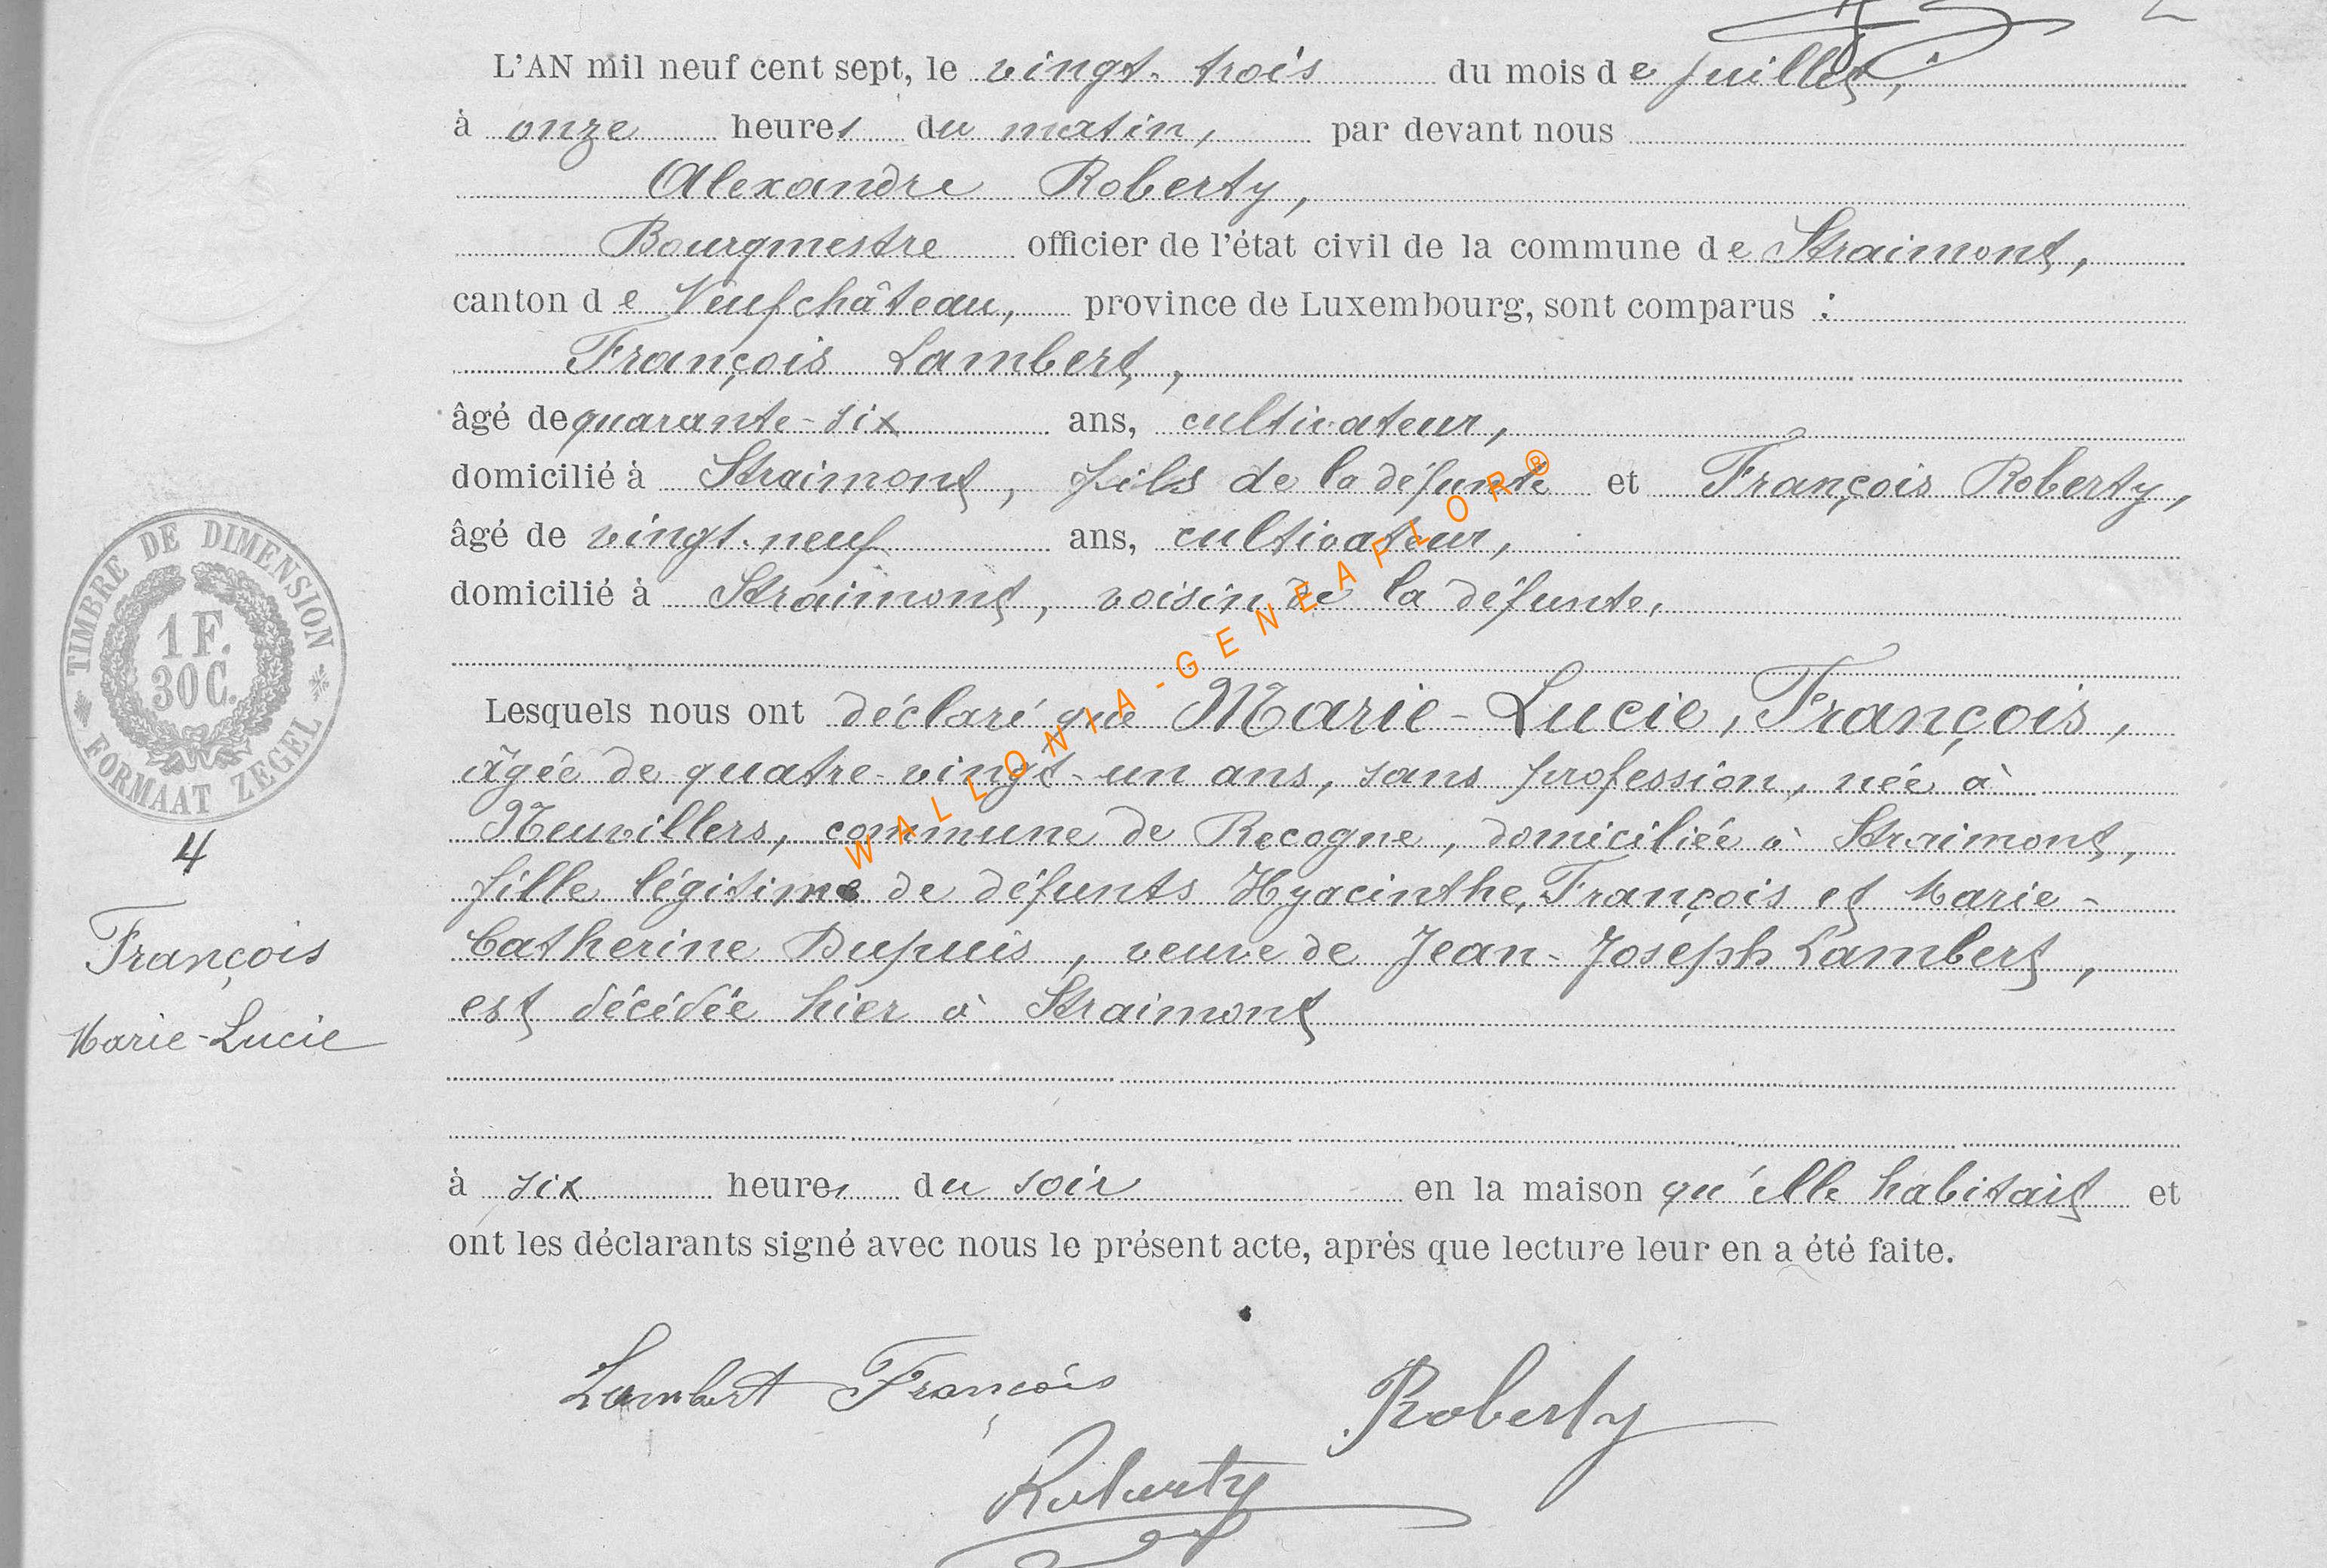 L'AN mil neuf cent sept, le vingt-trois du mois de juillet,
à onze heures du matin, par devant nous
Alexandre Roberty,
Bourgmestre officier de l'état civil de la commune de Straimont,
canton de Neufchâteau, province de Luxembourg, sont comparus :
François Lambert,
âgé de quarante-six ans, cultivateur,
domicilié à Straimont, fils de la défunte et François Roberty,
âgé de vingt-neuf ans, cultivateur,
domicilié à Straimont, voisin de la défunte,
Lesquels nous ont déclaré que Marie-Lucie, François,
âgée de quatre-vingt-un ans, sans profession, née à
Neuvillers, commune de Recogne, domiciliée à Straimont,
fille légitime de défunts Hyacinthe, François et Marie-
Catherine Dupuis, veuve de Jean-Joseph Lambert,
est décédée hier à Straimont
à six heures du soir en la maison qu'elle habitait et
ont les déclarants signé avec nous le présent acte, après que lecture leur en a été faite.
Lambert François
Roberty
Roberty
TIMBRE DE DIMENSION
1 F.
30 C.
FORMAAT ZEGEL
4
François
Marie-Lucie
WALLONIA-GENEAFLOR®